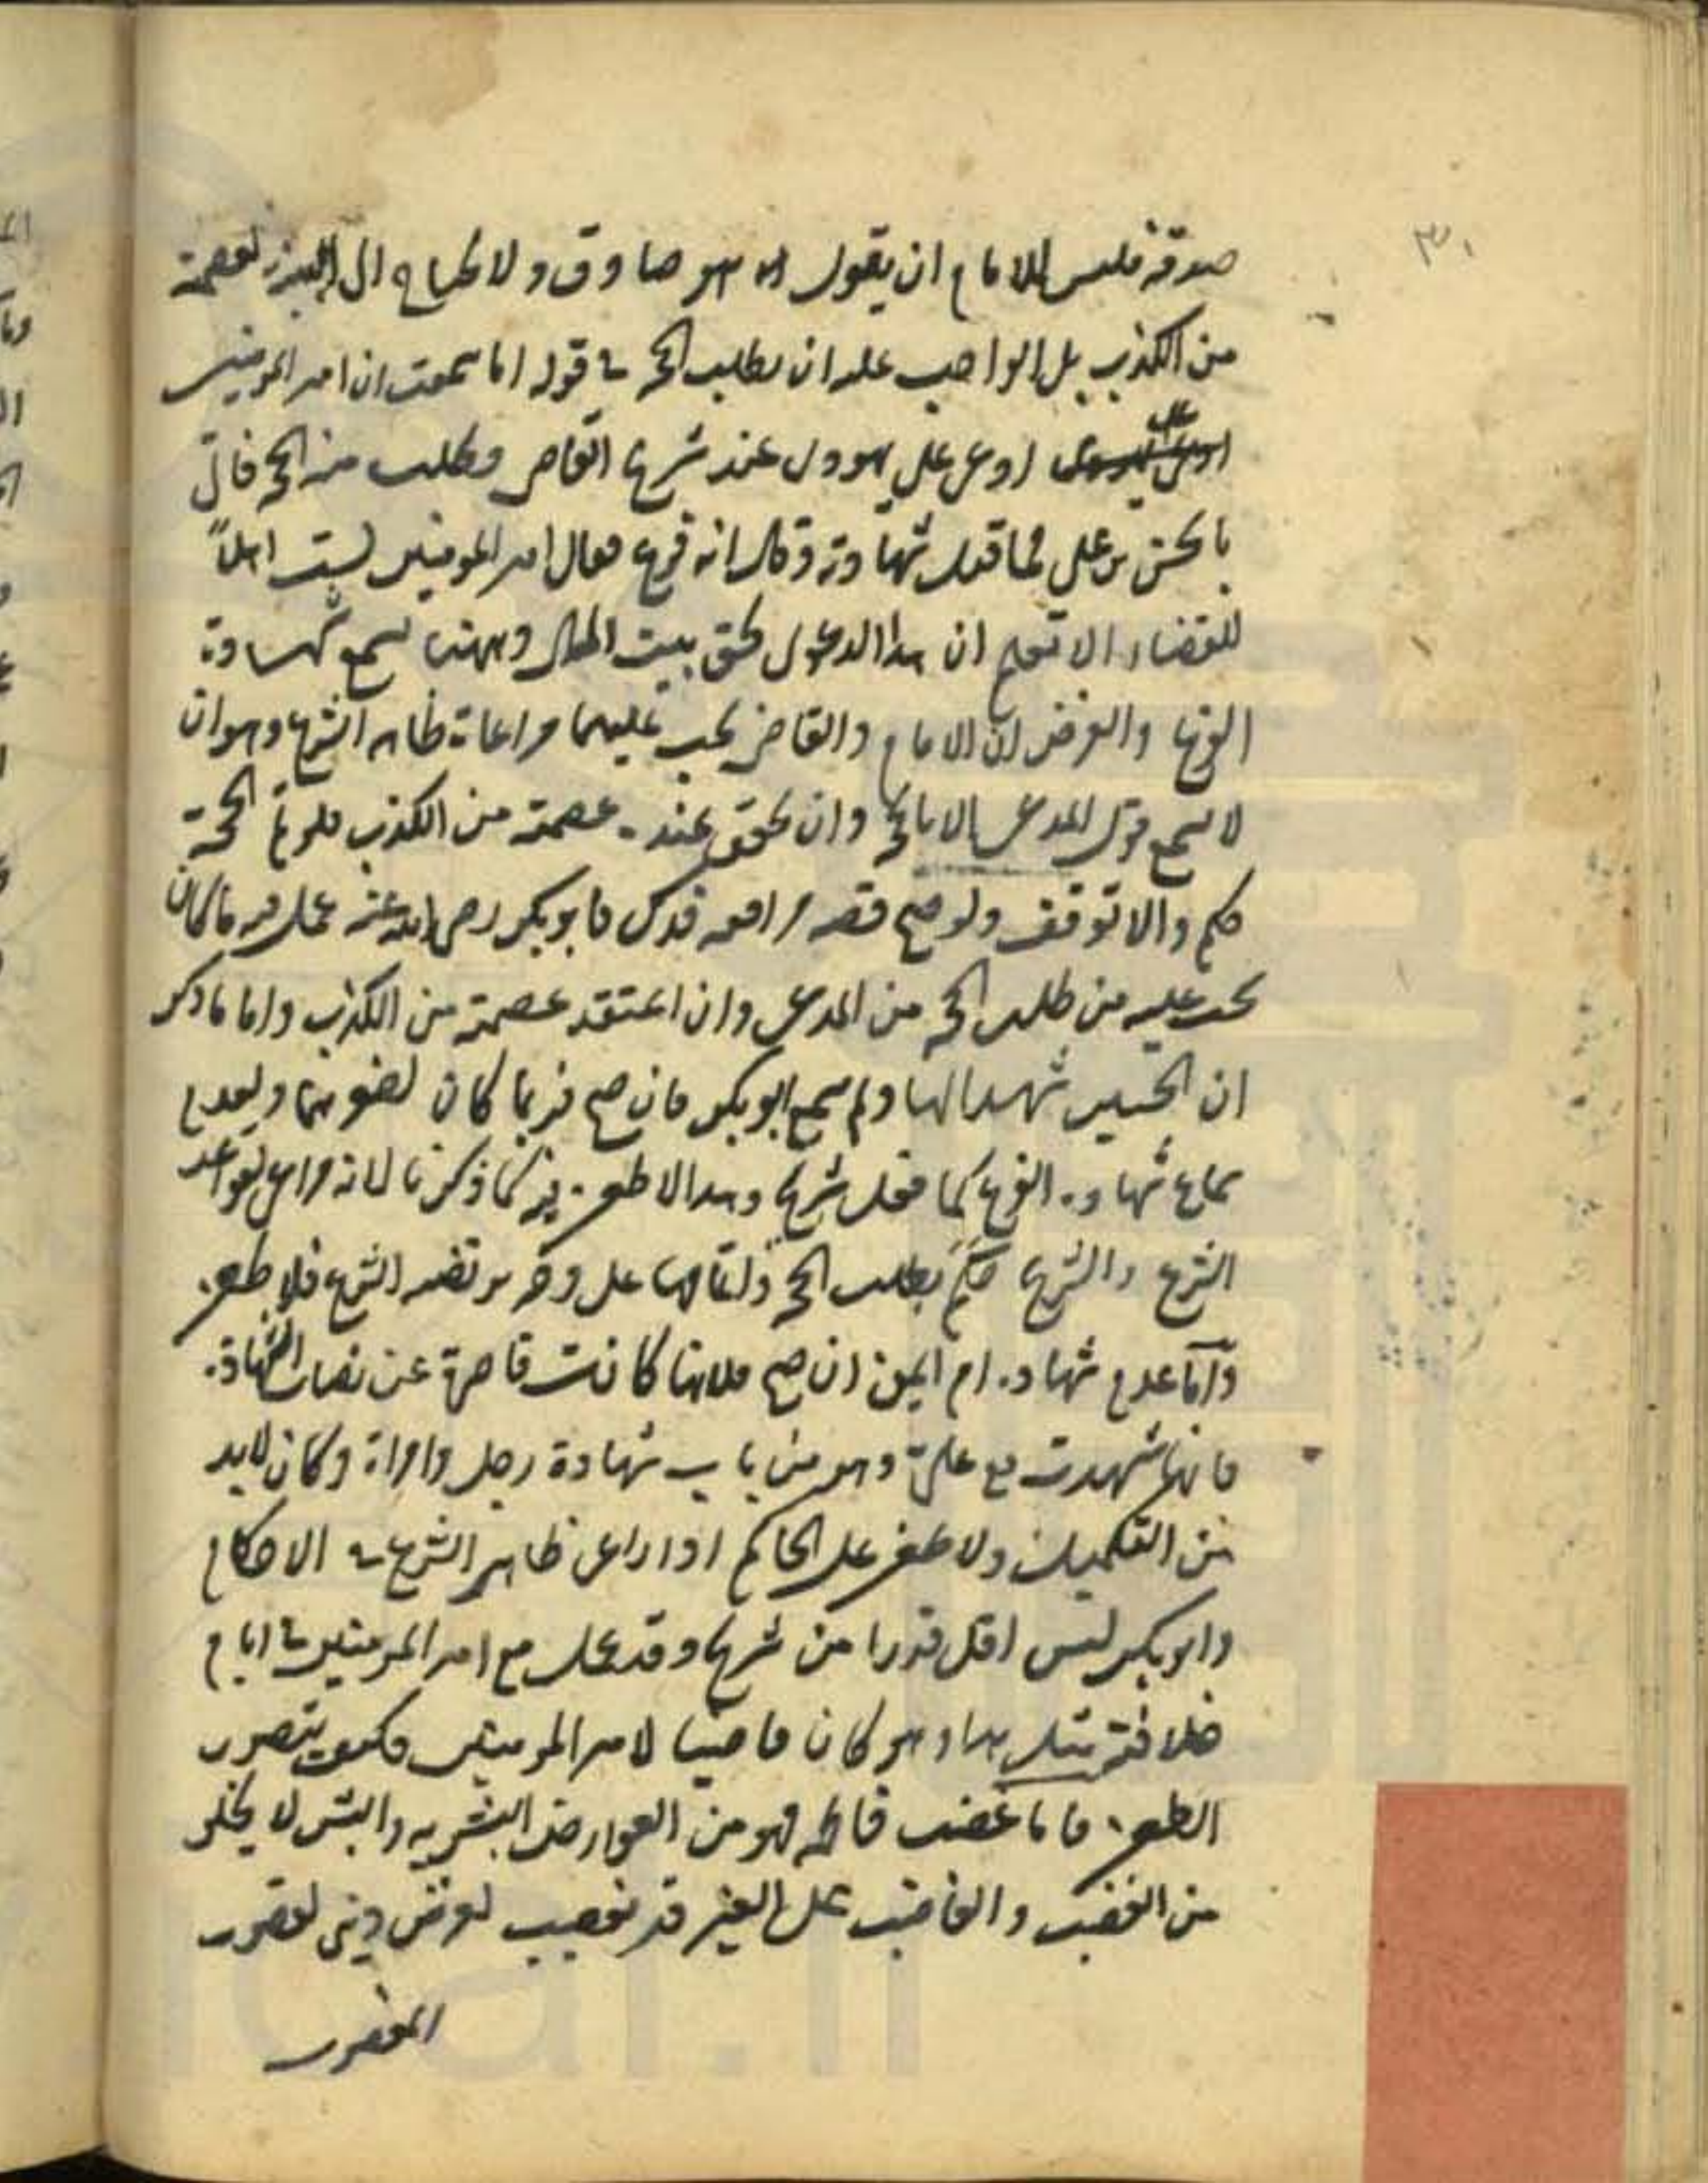 صدقه فليس للامام ان يقول انه هو صادق ولا يحتاج الى البينة لعصمته
من الكذب بل الواجب عليه ان يطلب الحجة في قوله اما سمعت ان امير المومنين
ادعى على يهودي عند شريح القاضي وطلب منه الحجة فاتى
بالحسن بن علي فما قبل شهادته وقال انه فرع فقال امير المومنين لست اهلاً
للقضاء الا تعلم ان هذا الدعوى لحق بيت المال وههنا تسمع شهادة
الفرع والغرض ان الامام والقاضي يجب عليهما مراعاة ظاهر الشرع وهو ان
لا يسمع قول المدعي الا بالحجة وان تحقق عنده عصمته من الكذب فلو تم الحجة
حكم والا توقف ولو صح قصة مرافعه فدك فابوبكر رضي الله عنه عمل فيه ما كان
يجب عليه من طلب الحجة من المدعي وان اعتقد عصمته من الكذب واما ما ذكر
ان الحسنين شهدا لها ولم يسمع ابوبكر فان صح فربما كان لصغرهما ولعدم
سماع شهادة الفرع كما فعل شريح وهذا لا طعن فيه كما ذكرنا لانه مراعي لقواعد
الشرع والشرع حكم بطلب الحجة واتيانها على وجه يرتضيه الشرع فلا طعن
وأما عدم شهادة ام ايمن ان صح فلانها كانت قاصرة عن نصاب الشهادة
فانها شهدت مع علي وهو من باب شهادة رجل وامراة وكان لابد
من التكميل ولا طعن على الحاكم اذا راعى ظاهر الشرع في الاحكام
وابوبكر ليس اقل قدرا من شريح وقد عمل مع امير المومنين في ايام
خلافته مثل هذا وهو كان قاضيا لامير المومنين فكيف يتصور
الطعن فاما غضب فاطمه فهو من العوارض البشريه والبشر لا يخلو
من الغضب والغاضب على الغير قد يغضب لغرض ديني لقصور
المغضوب